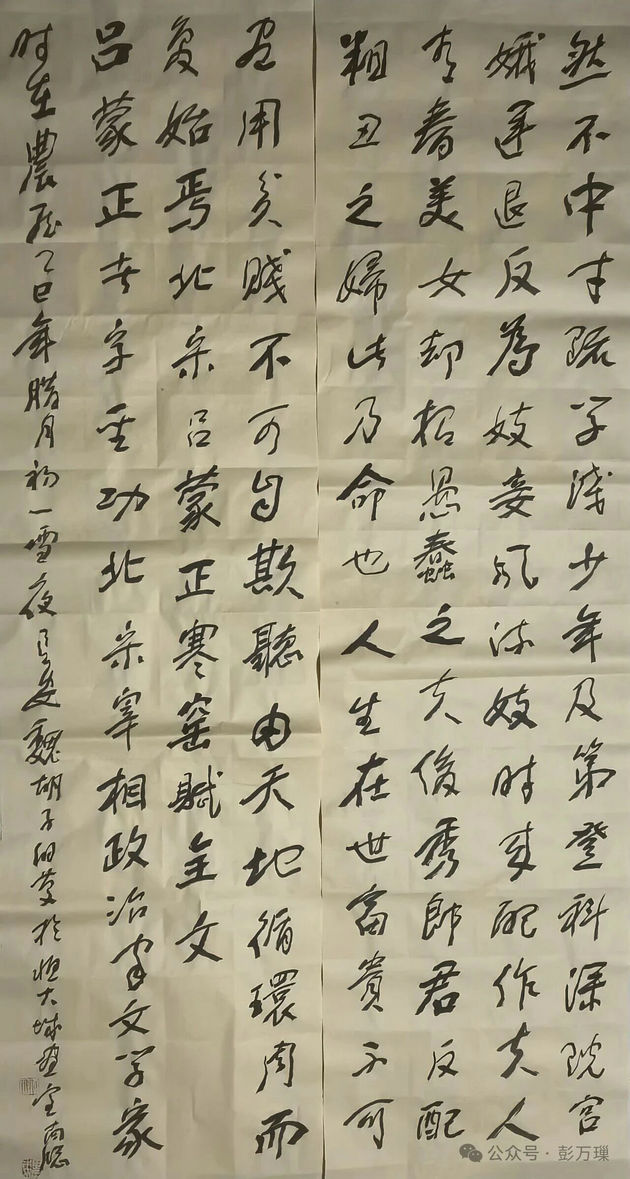 然不中才疏学淺少年及第登科深院宫
娥運退反為妓妾风流妓时来配作夫人
青春美女却招愚蠢之夫俊秀郎君反配
粗丑之婦此乃命也人生在世富貴不可
尽用贫賤不可自欺聽由天地循環周而
复始焉北宋吕蒙正寒窑賦全文
吕蒙正者字圣功北宋宰相政治家文学家
时在農历乙巳年腊月初一雪夜魏胡子於恒大城画室南牕
公众号·彭万璅